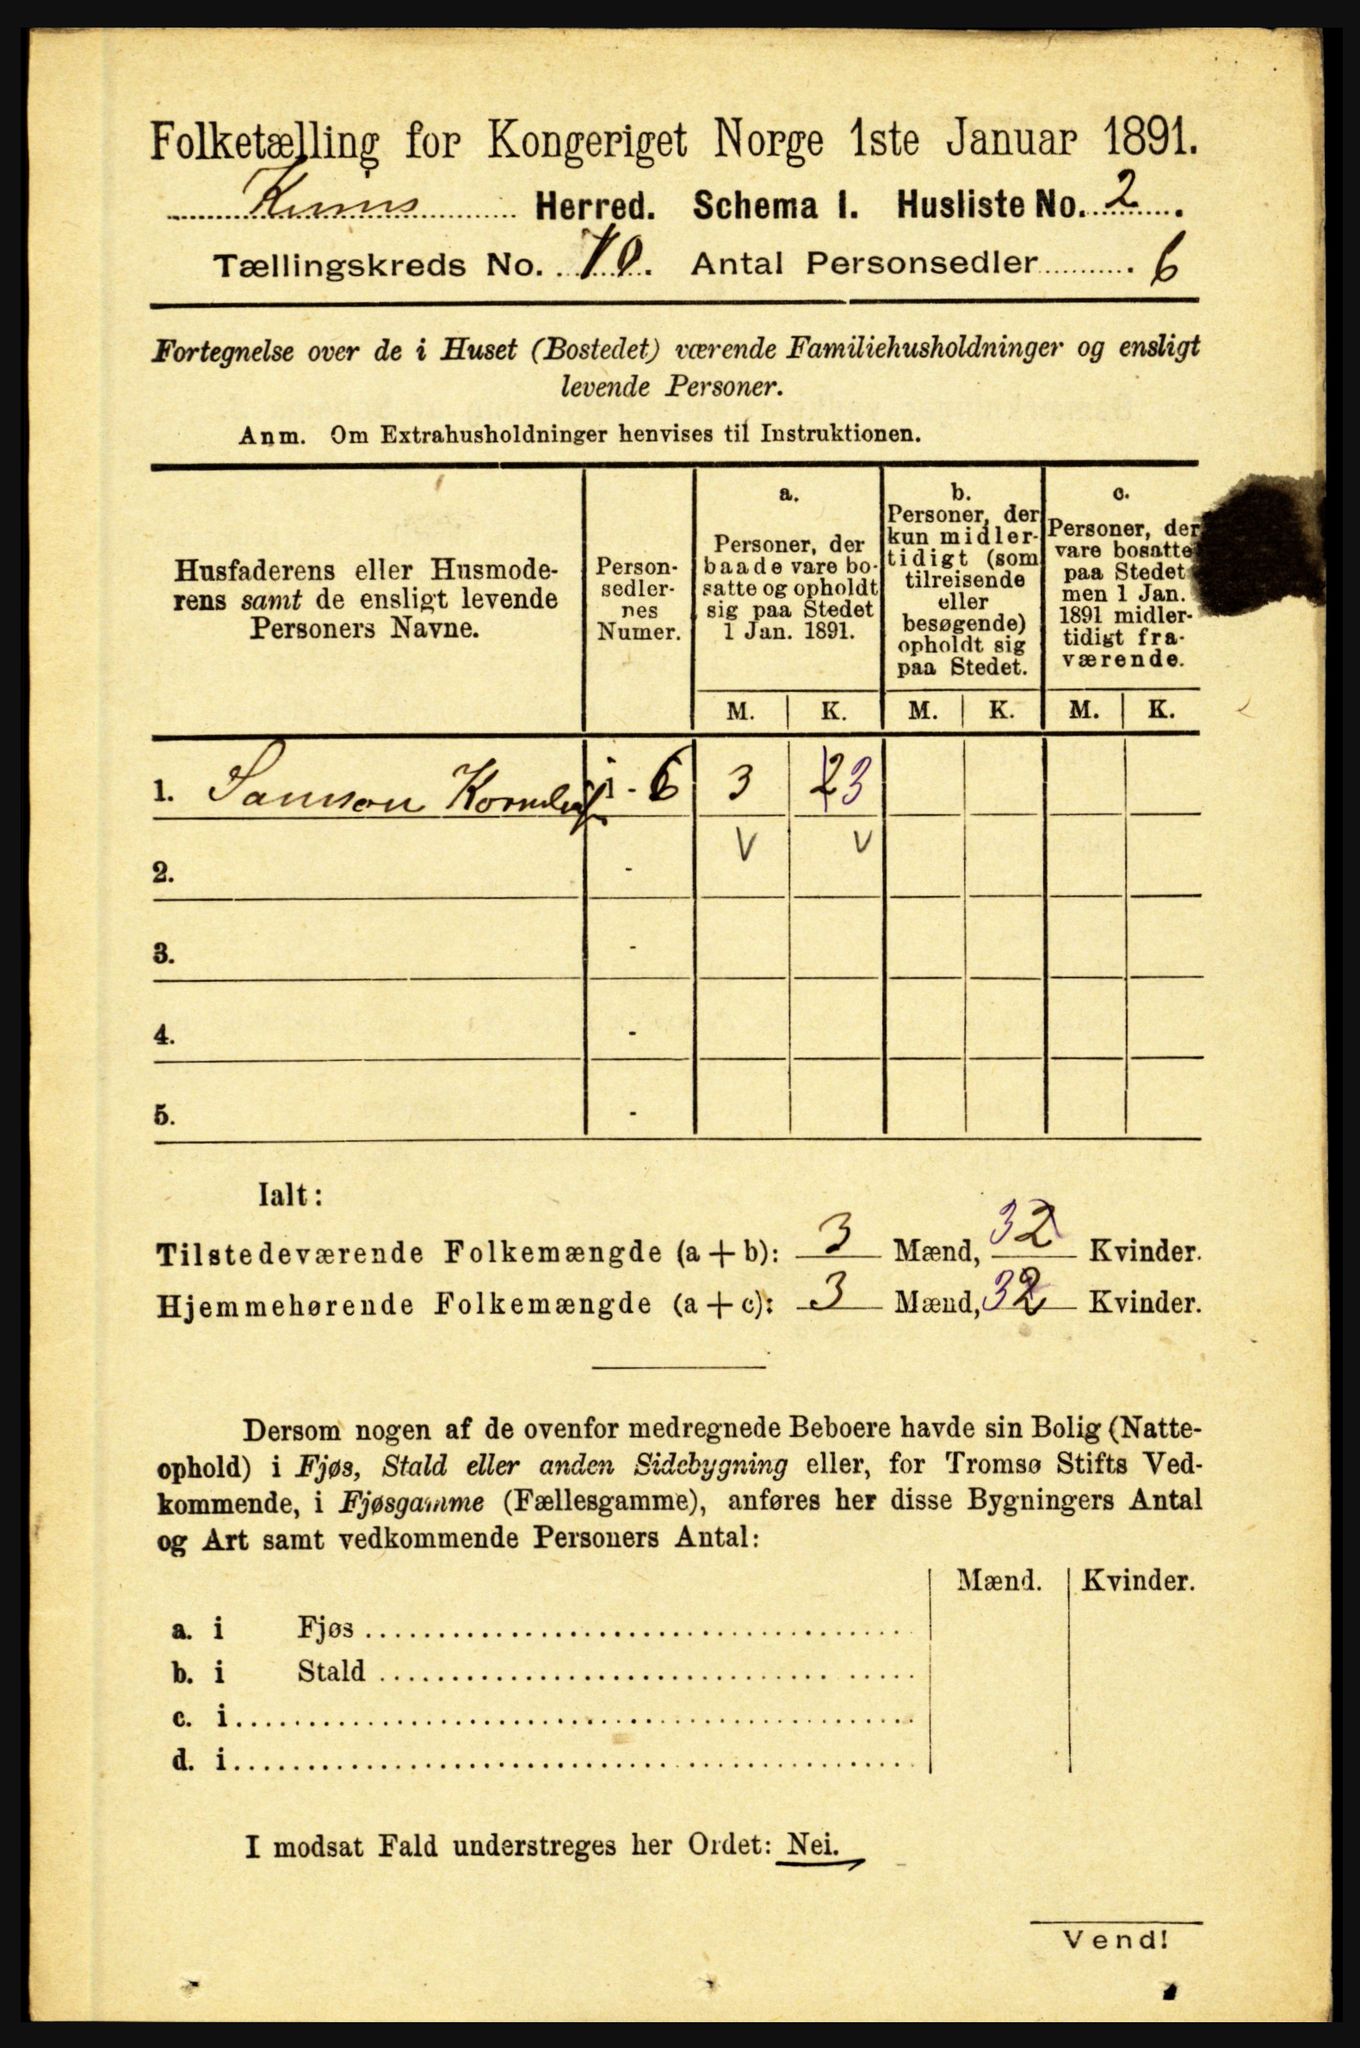 Folketælling for Kongeriget Norge 1ste Januar 1891.
Kinns Herred. Schema I. Husliste No. 2.
Tællingskreds No. 10. Antal Personsedler 6
Fortegnelse over de i Huset (Bostedet) værende Familiehusholdninger og ensligt
levende Personer.
Anm. Om Extrahusholdninger henvises til Instruktionen.
Husfaderens eller Husmode-
rens samt de ensligt levende
Personers Navne.
Person-
sedler-
nes
Numer.
a.
Personer, der
baade vare bo-
satte og opholdt
sig paa Stedet
1 Jan. 1891.
b.
Personer, der
kun midler-
tidigt (som
tilreisende
eller
besøgende)
opholdt sig
paa Stedet.
c.
Personer, der
vare bosatte
paa Stedet
men 1 Jan.
1891 midler-
tidigt fra-
værende.
M. K. M. K. M. K.
1. Samson 1 - 6 3 2 3
V V
2. -
3. -
4. -
5. -
Ialt:
Tilstedeværende Folkemængde (a + b): 3 Mænd, 3 2 Kvinder.
Hjemmehørende Folkemængde (a + c): 3 Mænd, 3 2 Kvinder.
Dersom nogen af de ovenfor medregnede Beboere havde sin Bolig (Natte-
ophold) i Fjøs, Stald eller anden Sidebygning eller, for Tromsø Stifts Ved-
kommende, i Fjøsgamme (Fællesgamme), anføres her disse Bygningers Antal
og Art samt vedkommende Personers Antal:
Mænd. Kvinder.
a. i Fjøs
b. i Stald
c. i
d. i
I modsat Fald understreges her Ordet: Nei.
Vend!